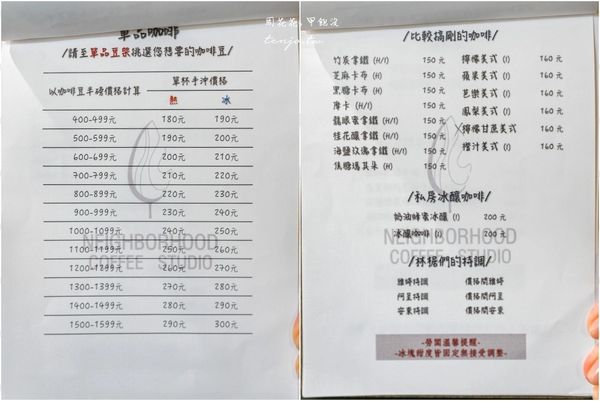 周花花,甲飽沒
tenjo.tw
單品咖啡
/請至單品豆架挑選您想要的咖啡豆/
以咖啡豆半磅價格計算 單杯手沖價格
熱 冰
400-499元 180元 190元
500-599元 190元 200元
600-699元 200元 210元
700-799元 210元 220元
800-899元 220元 230元
900-999元 230元 240元
1000-1099元 240元 250元
1100-1199元 250元 260元
1200-1299元 260元 270元
1300-1399元 270元 280元
1400-1499元 280元 290元
1500-1599元 290元 300元
NEIGHBORHOOD
COFFEE STUDIO
/比較搞剛的咖啡/
竹炭拿鐵 (H/I) 150 元
芝麻卡布 (H) 150 元
黑糖卡布 (H) 150 元
摩卡 (H/I) 150 元
龍眼蜜拿鐵 (H/I) 150 元
桂花釀拿鐵 (H/I) 150 元
海鹽玫瑰拿鐵 (H/I) 150 元
焦糖瑪其朵 (H) 150 元
檸檬美式 (I) 160 元
蘋果美式 (I) 160 元
芭樂美式 (I) 160 元
鳳梨美式 (I) 160 元
X檸檬甘蔗美式 160 元
橙汁美式 (I) 160 元
/私房冰釀咖啡/
奶油蜂蜜冰釀 (I) 200 元
冰釀咖啡 (I) 200 元
NEIGHBORHOOD
COFFEE STUDIO
/林楊們的特調/
雅婷特調 價格問雅婷
阿呈特調 價格問阿呈
安東特調 價格問安東
-勞闆溫馨提醒-
-冰塊甜度皆固定無接受調整-